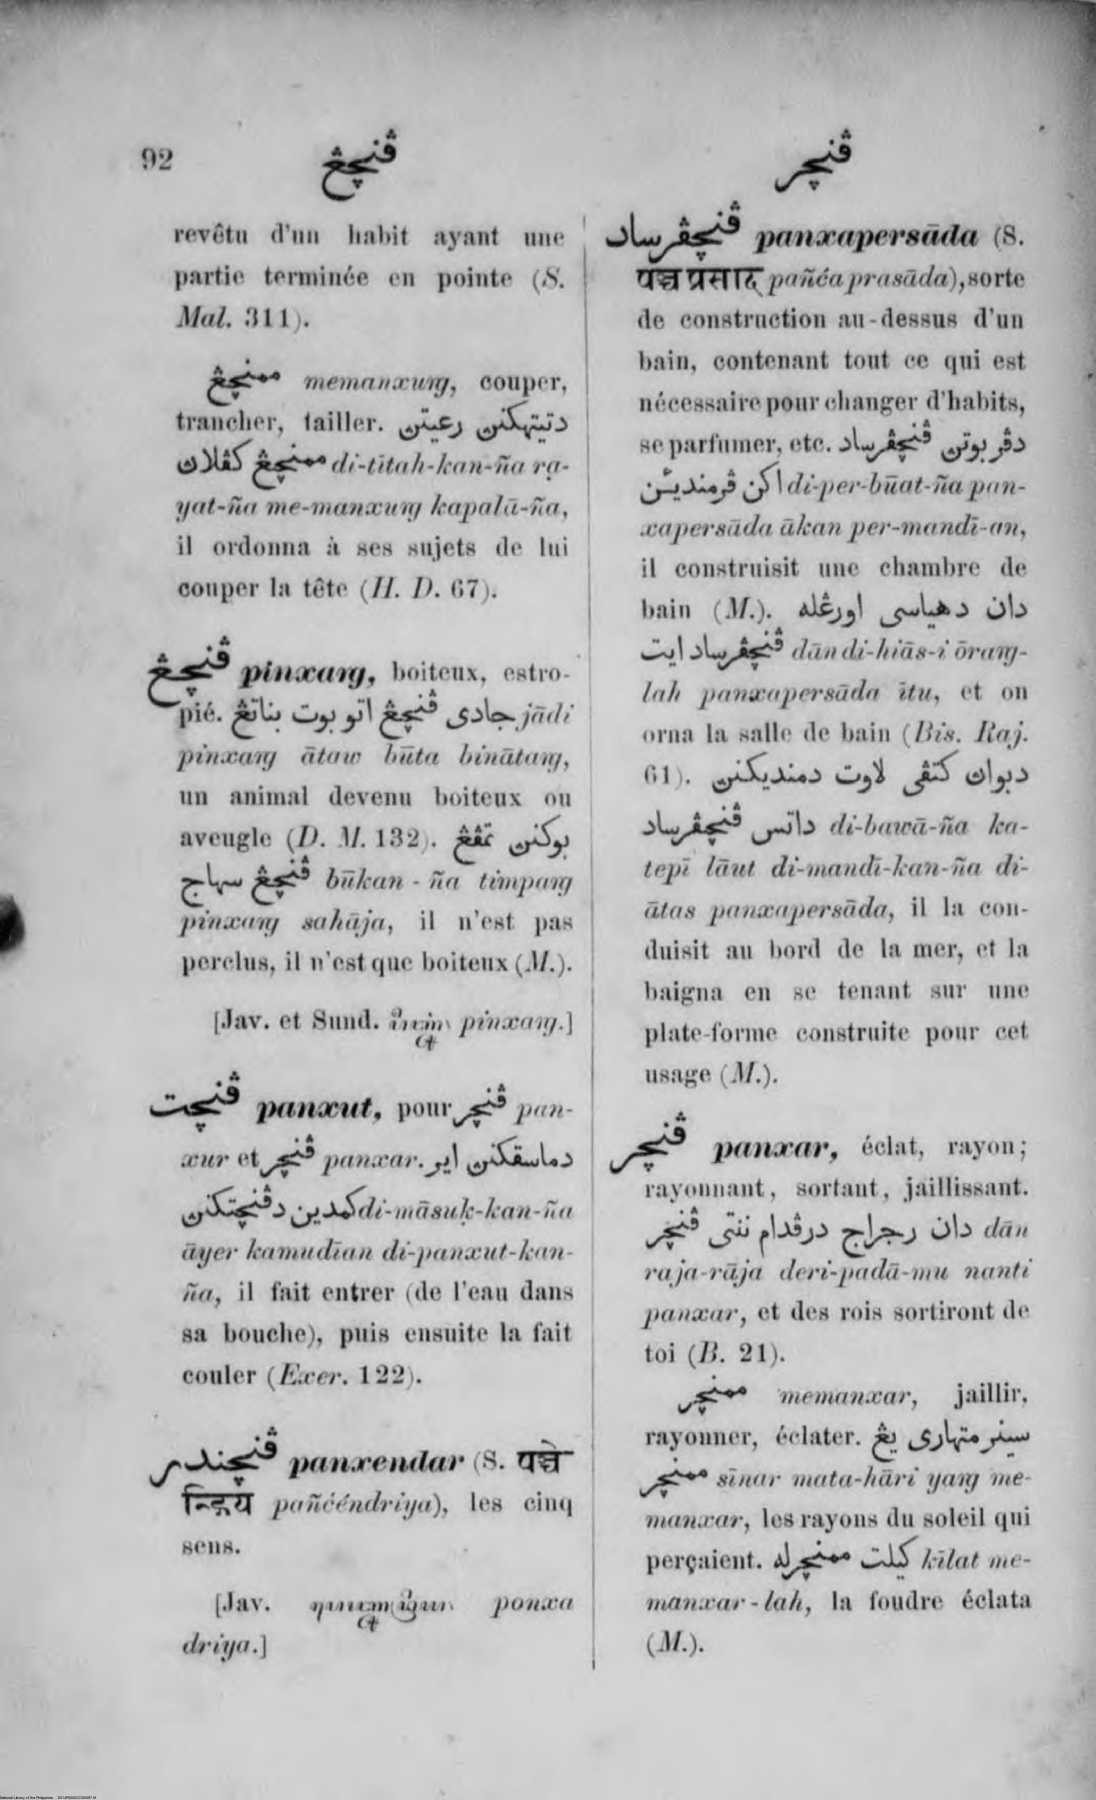 92
ڤنچڠ
ڤنچر
revêtu d'un habit ayant une
partie terminée en pointe (S.
Mal. 311).
ممنچڠ memanxurg, couper,
trancher, tailler. دتيتهكنن رعيتن
ممنچڠ كڤلان di-tītah-kan-ña rạ-
yat-ña me-manxurg kapalā-ña,
il ordonna à ses sujets de lui
couper la tête (H. D. 67).
ڤنچڠ pinxarg, boiteux, estro-
pié. جادى ڤنچڠ اتو بوت بناتڠ jādi
pinxarg ātaw būta binātarg,
un animal devenu boiteux ou
aveugle (D. M. 132). بوكنن تمڤڠ
ڤنچڠ سهاج būkan-ña timparg
pinxarg sahāja, il n'est pas
perclus, il n'est que boiteux (M.).
[Jav. et Sund. pinxarg.]
ڤنچت panxut, pour ڤنچر pan-
xur et ڤنچر panxar. دماسقكنن اير
كمدين دڤنچتكنن di-māsuḳ-kan-ña
āyer kamudīan di-panxut-kan-
ña, il fait entrer (de l'eau dans
sa bouche), puis ensuite la fait
couler (Exer. 122).
ڤنچندر panxendar (S. पञ्चे
न्द्रिय pañćéndriya), les cinq
sens.
[Jav. ponxa
driya.]
ڤنچڤرساد panxapersāda (S.
पञ्च प्रसाद् pañća prasāda), sorte
de construction au-dessus d'un
bain, contenant tout ce qui est
nécessaire pour changer d'habits,
se parfumer, etc. دڤربوتن ڤنچڤرساد
اكن ڤرمنديئن di-per-būat-ña pan-
xapersāda ākan per-mandī-an,
il construisit une chambre de
bain (M.). دان دهياسى اورڠله
ڤنچڤرساد ايت dān di-hiās-i ōrarg-
lah panxapersāda ītu, et on
orna la salle de bain (Bis. Raj.
61). دبوان كتڤى لاوت دمنديكنن
داتس ڤنچڤرساد di-bawā-ña ka-
tepī lāut di-mandī-kan-ña di-
ātas panxapersāda, il la con-
duisit au bord de la mer, et la
baigna en se tenant sur une
plate-forme construite pour cet
usage (M.).
ڤنچر panxar, éclat, rayon;
rayonnant, sortant, jaillissant.
دان رجراج درڤدام ننتى ڤنچر dān
raja-rāja deri-padā-mu nanti
panxar, et des rois sortiront de
toi (B. 21).
ممنچر memanxar, jaillir,
rayonner, éclater. سينر متهارى يڠ
ممنچر sīnar mata-hāri yarg me-
manxar, les rayons du soleil qui
perçaient. كيلت ممنچرله kīlat me-
manxar-lah, la foudre éclata
(M.).